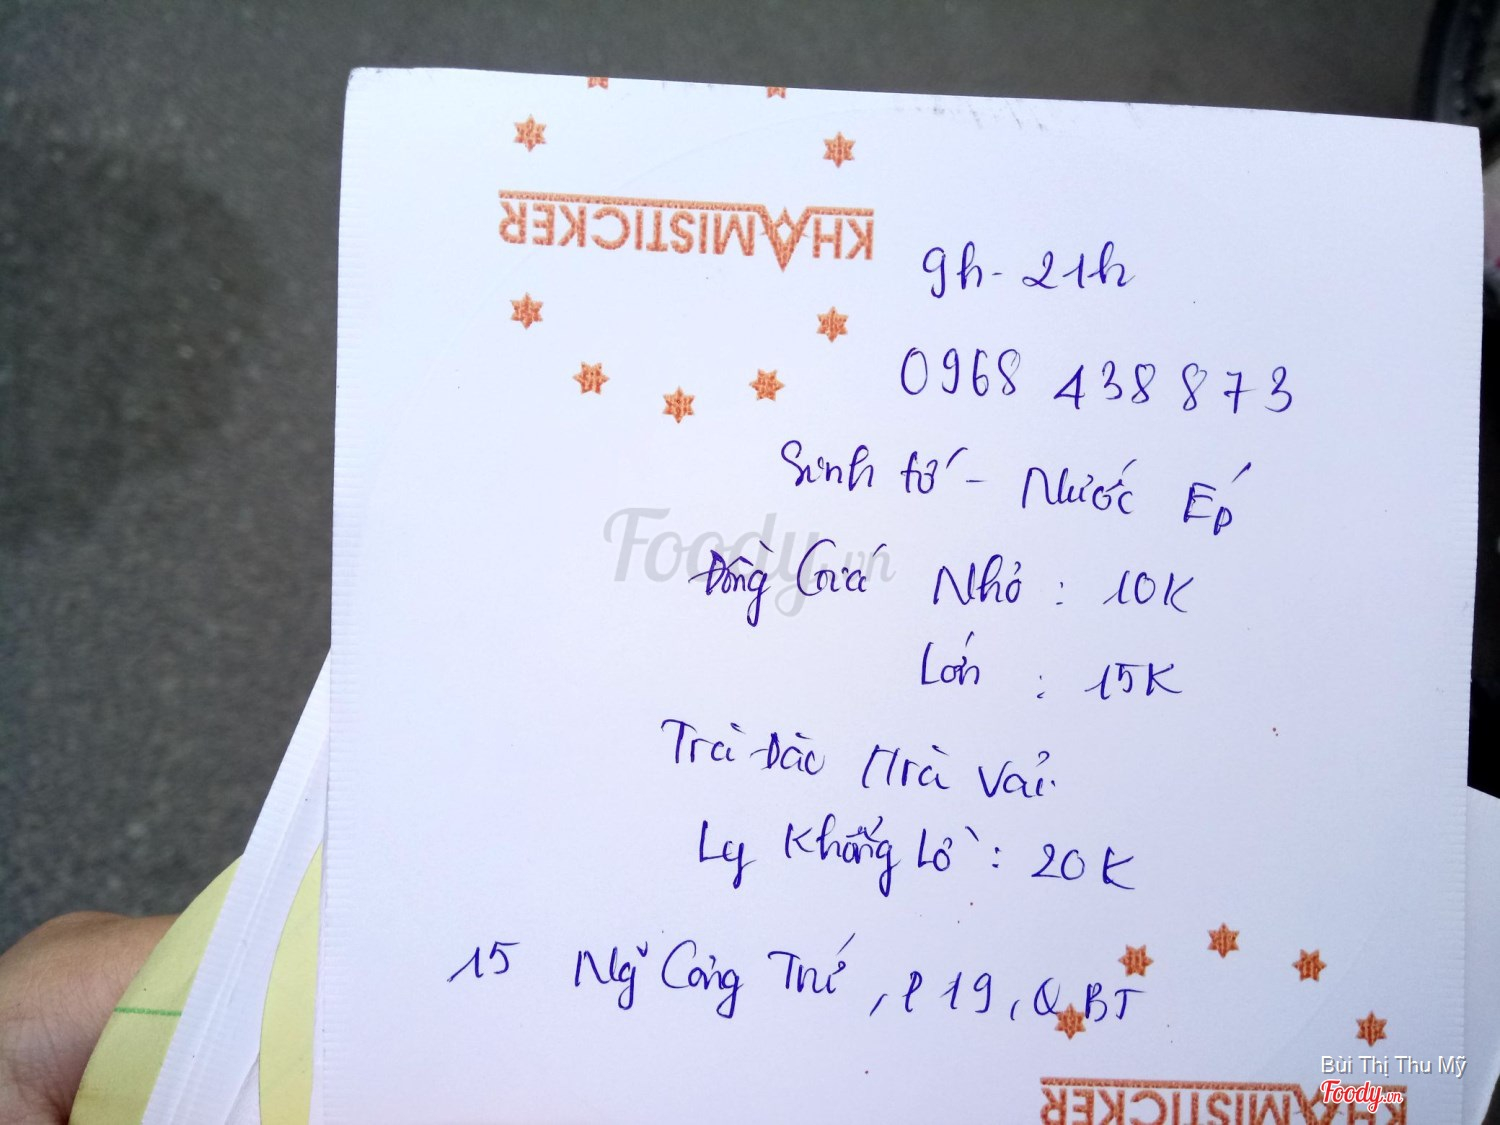 KHAMISTICKER
9h - 21h
0968 438 873
Sinh tố - Nước Ép
Đồng Giá Nhỏ : 10K
Lớn : 15K
Foody.vn
Trà Đào Trà Vải
Ly Khổng Lồ : 20K
15 Ng~ Công Trứ, P19, Q BT
Bùi Thị Thu Mỹ
Foody.vn
KHAMISTICKER